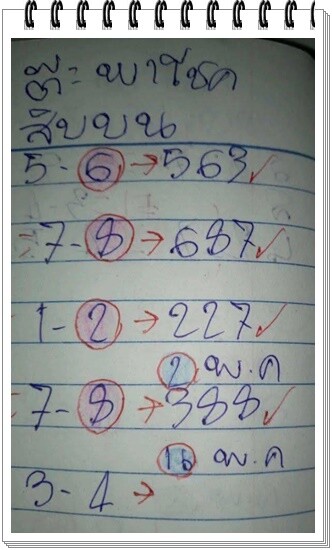 ตี๋ะ พาโชค
สิบบน
5-6→563✓
7-8→687✓
1-2→227✓
2 พ.ค
7-8→388✓
16 พ.ค
3-4→